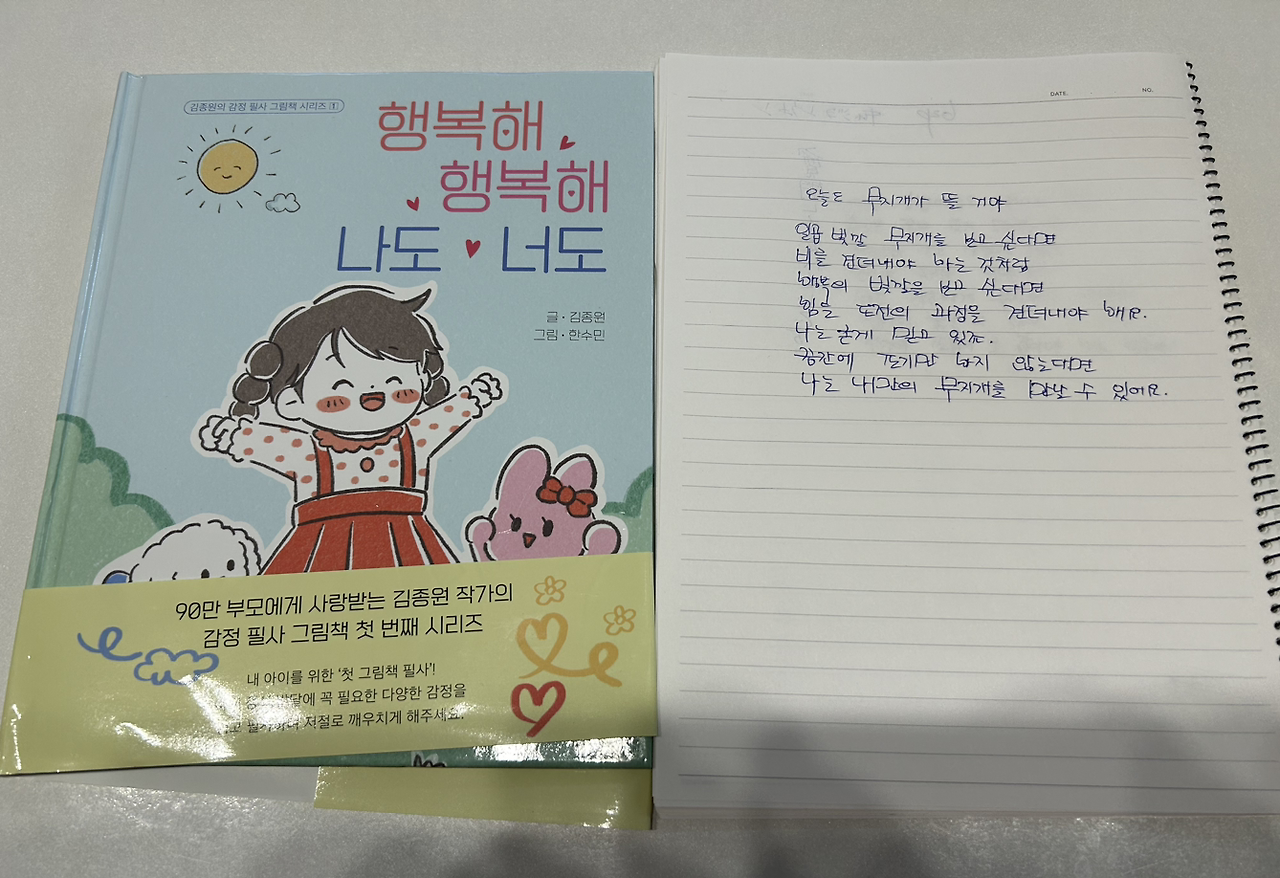 김종원의 감정 필사 그림책 시리즈 1
행복해
행복해
나도 너도
글·김종원
그림·한수민
90만 부모에게 사랑받는 김종원 작가의
감정 필사 그림책 첫 번째 시리즈
내 아이를 위한 '첫 그림책 필사'!
에 꼭 필요한 다양한 감정을
저절로 깨우치게 해주세요.
DATE. NO.
오늘도 무지개가 뜰 거야
일곱 빛깔 무지개를 보고 싶다면
비를 견뎌내야 하는 것처럼
행복의 빛깔을 보고 싶다면
힘든 도전의 과정을 견뎌내야 해요.
나는 굳게 믿고 있죠.
중간에 포기만 하지 않는다면
나는 나만의 무지개를 만날 수 있어요.